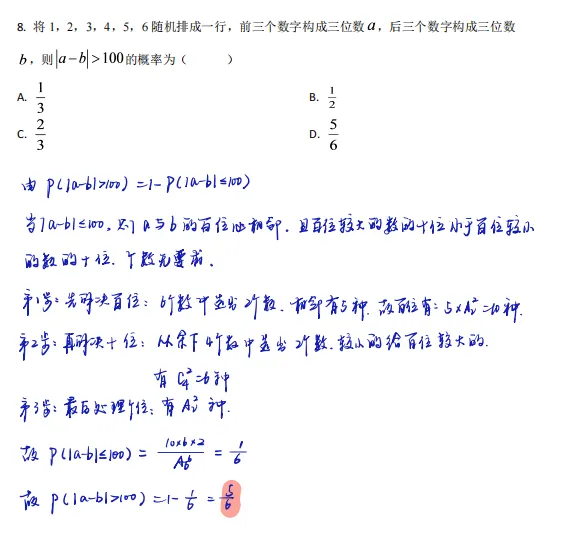 8. 将 1，2，3，4，5，6 随机排成一行，前三个数字构成三位数 a，后三个数字构成三位数
b，则|a−b|>100的概率为（　　）
A. 1/3
B. 1/2
C. 2/3
D. 5/6
由 P(|a-b|>100) = 1 - P(|a-b|≤100)
当|a-b|≤100, 则 a 与 b 的百位必相邻. 且百位较大的数的十位小于百位较小
的数的十位. 个数无要求.
第1步: 先解决百位: 6个数中选出2个数. 相邻有5种. 故百位有: 5×A₂²=10种.
第2步: 再解决十位: 从余下4个数中选出2个数. 较小的给百位较大的.
有 C₄²=6种
第3步: 最后处理个位: 有 A₂² 种.
故 P(|a-b|≤100) = (10×6×2)/A₆⁶ = 1/6
故 P(|a-b|>100) = 1 - 1/6 = 5/6